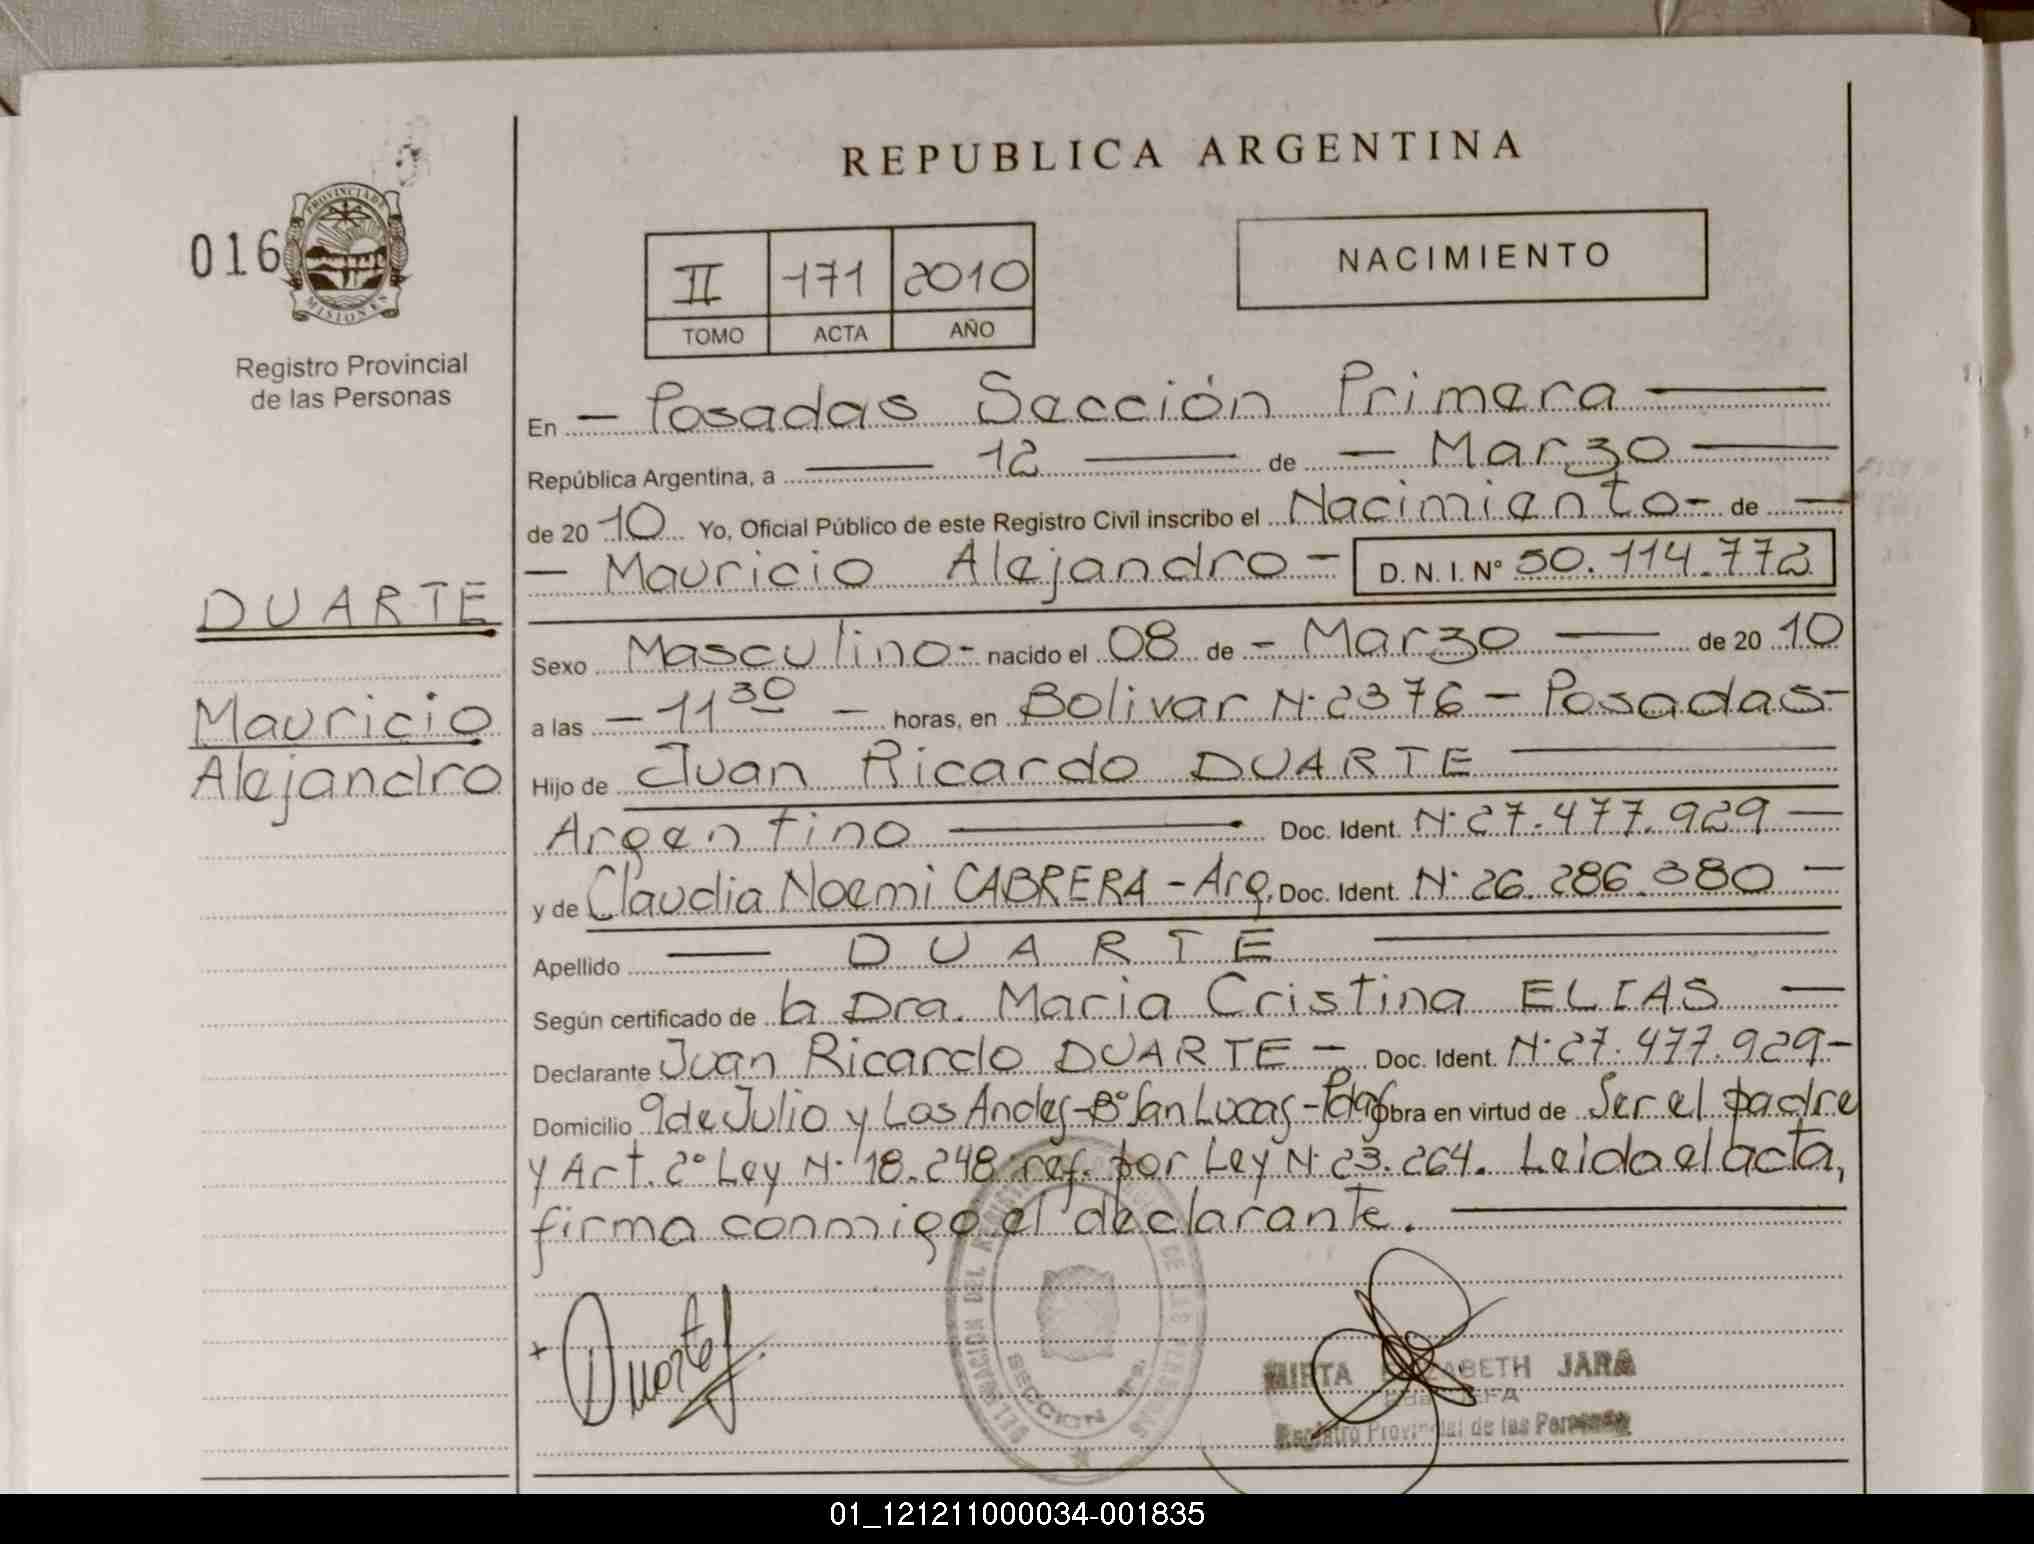 REPUBLICA ARGENTINA
016
PROVINCIA DE
MISIONES
Registro Provincial
de las Personas
II 171 2010
TOMO ACTA AÑO
NACIMIENTO
En - Posadas Sección Primera
República Argentina, a 12 de - Marzo
de 20 10 Yo, Oficial Público de este Registro Civil inscribo el Nacimiento - de -
- Mauricio Alejandro - D. N. I. N° 50.114.772
DUARTE
Mauricio
Alejandro
Sexo Masculino - nacido el 08 de - Marzo - de 20 10
a las - 11 30 - horas, en Bolivar N· 2376 - Posadas -
Hijo de Juan Ricardo DUARTE
Argentino Doc. Ident. N· 27.477.929 -
y de Claudia Noemi CABRERA - Arg. Doc. Ident. N· 26.286.380 -
Apellido - DUARTE
Según certificado de la Dra. Maria Cristina ELIAS -
Declarante Juan Ricardo DUARTE - Doc. Ident. N· 27.477.929 -
Domicilio 9 de Julio y Los Andes - B° San Lucas - Pdas Obra en virtud de Ser el padre
y Art. 2° Ley N· 18.248 ref. por Ley N· 23.264. Leida el acta,
firma conmigo el declarante.
x Duarte
SECCION 1ra.
MIRTA ELIZABETH JARA
Registro Provincial de las Personas
01_121211000034-001835